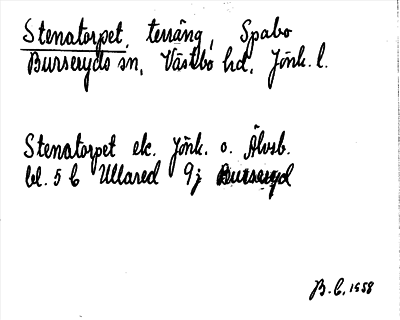 Stenatorpet, terräng, Spabo
Burseryds sn, Västbo hd, Jönk. l.
Stenatorpet ek. Jönk. o. Älvsb.
bl. 5 C Ullared 9j Burseryd
B. C. 1958